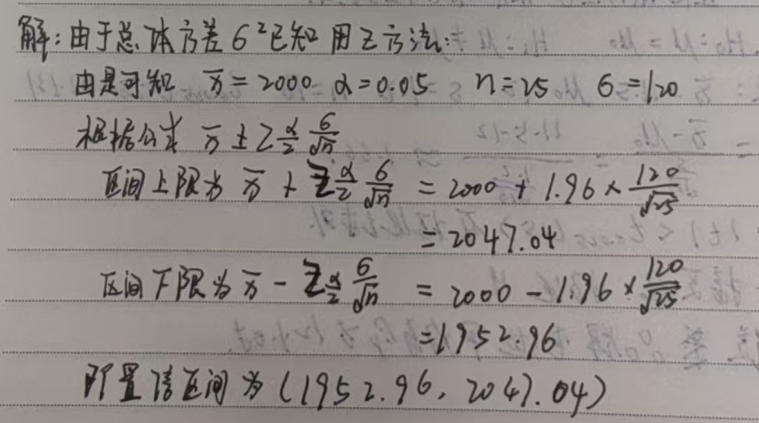 解:由于总体方差σ²已知 用Z方法:
由是可知 x̄=2000 α=0.05 n=25 σ=120
根据公式 x̄±Zα/2 σ/√n
区间上限为 x̄+Zα/2 σ/√n = 2000+1.96×120/√25
=2047.04
区间下限为 x̄-Zα/2 σ/√n = 2000-1.96×120/√25
=1952.96
即置信区间为(1952.96,2047.04)